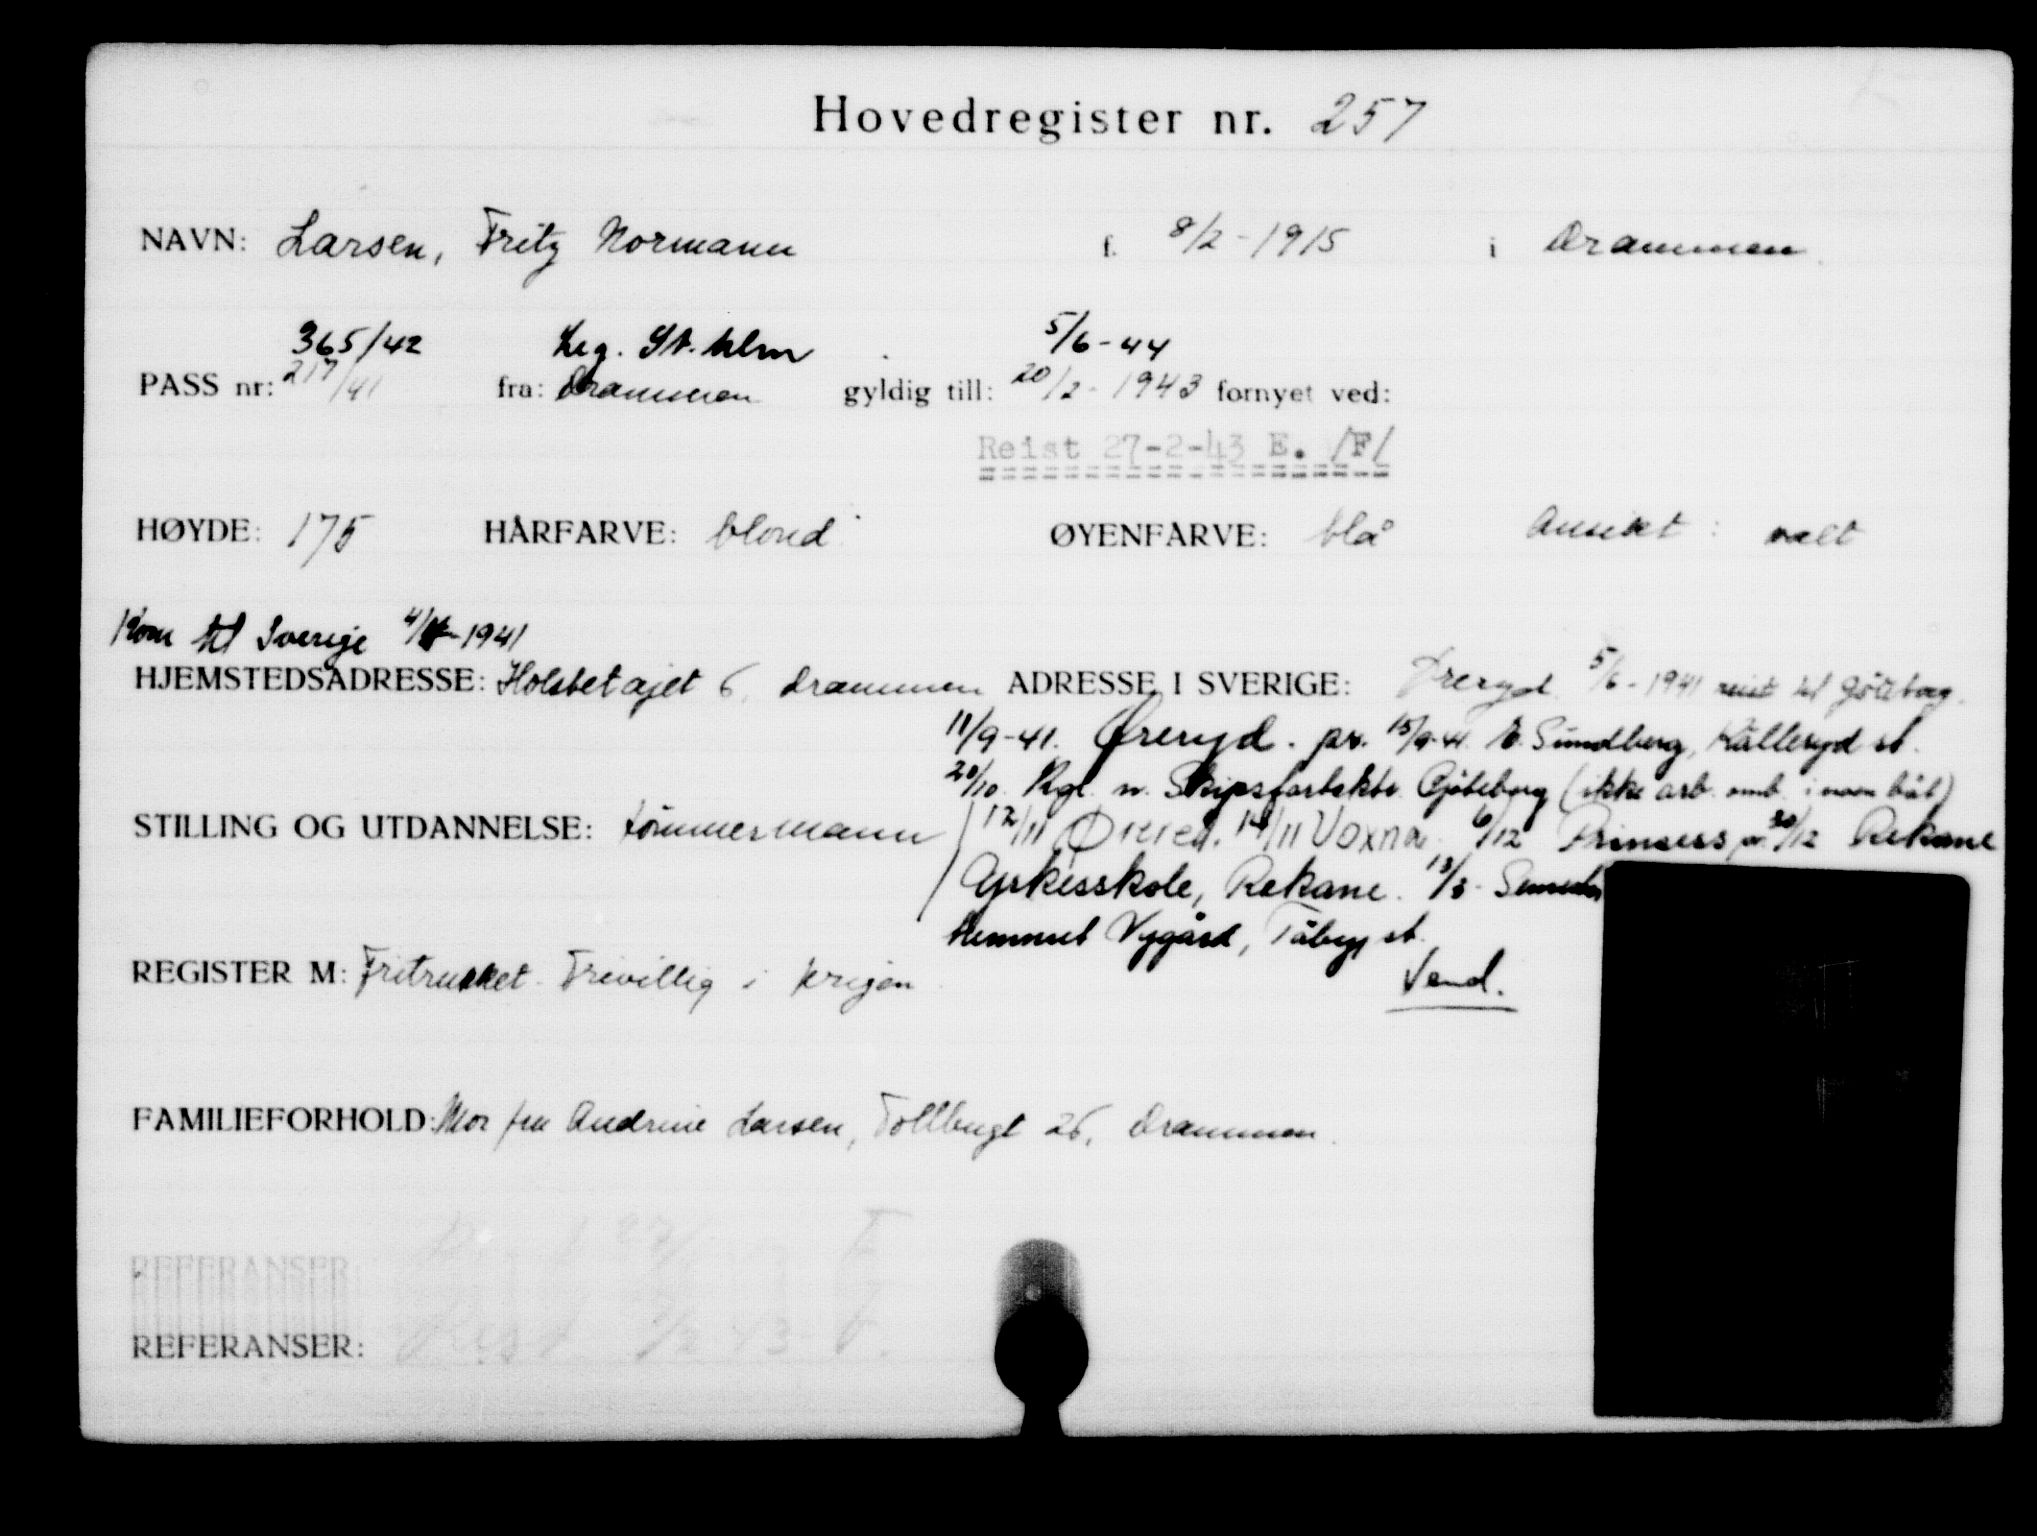 Hovedregister nr. 257
NAVN: Larsen, Fritz Normann f. 8/2-1915 i Drammen.
365/42 Leg. St.hlm 5/6-44
PASS nr: 217/41 fra: Drammen gyldig till: 20/2-1943 fornyet ved:
Reist 27-2-43 E. /F/
HØYDE: 175 HÅRFARVE: blond ØYENFARVE: blå Ansikt: ovalt
Kom til Sverige 4/ -1941
HJEMSTEDSADRESSE: 6, Drammen ADRESSE I SVERIGE: Øreryd 5/6-1941 reist til Göteborg.
11/9-41. Øreryd. pr. 15/9-41. E. Sundberg, Kålleryd st.
20/10. Kgl. n. Gøteborg (ikke arb. omb. i noen båt)
STILLING OG UTDANNELSE: tømmermann 12/11 14/11 Voxna. 6/12 Prinsess pr. 30/12 Rekane
Yrkesskole, Rekane. 13/3-
Hemmet Nygård, Täby st.
REGISTER M: Fritrukket. Frivillig i krigen.
Vend.
FAMILIEFORHOLD: Mor fru Andrine Larsen, Tollbugt 26, Drammen.
REFERANSER
REFERANSER: Reist 43